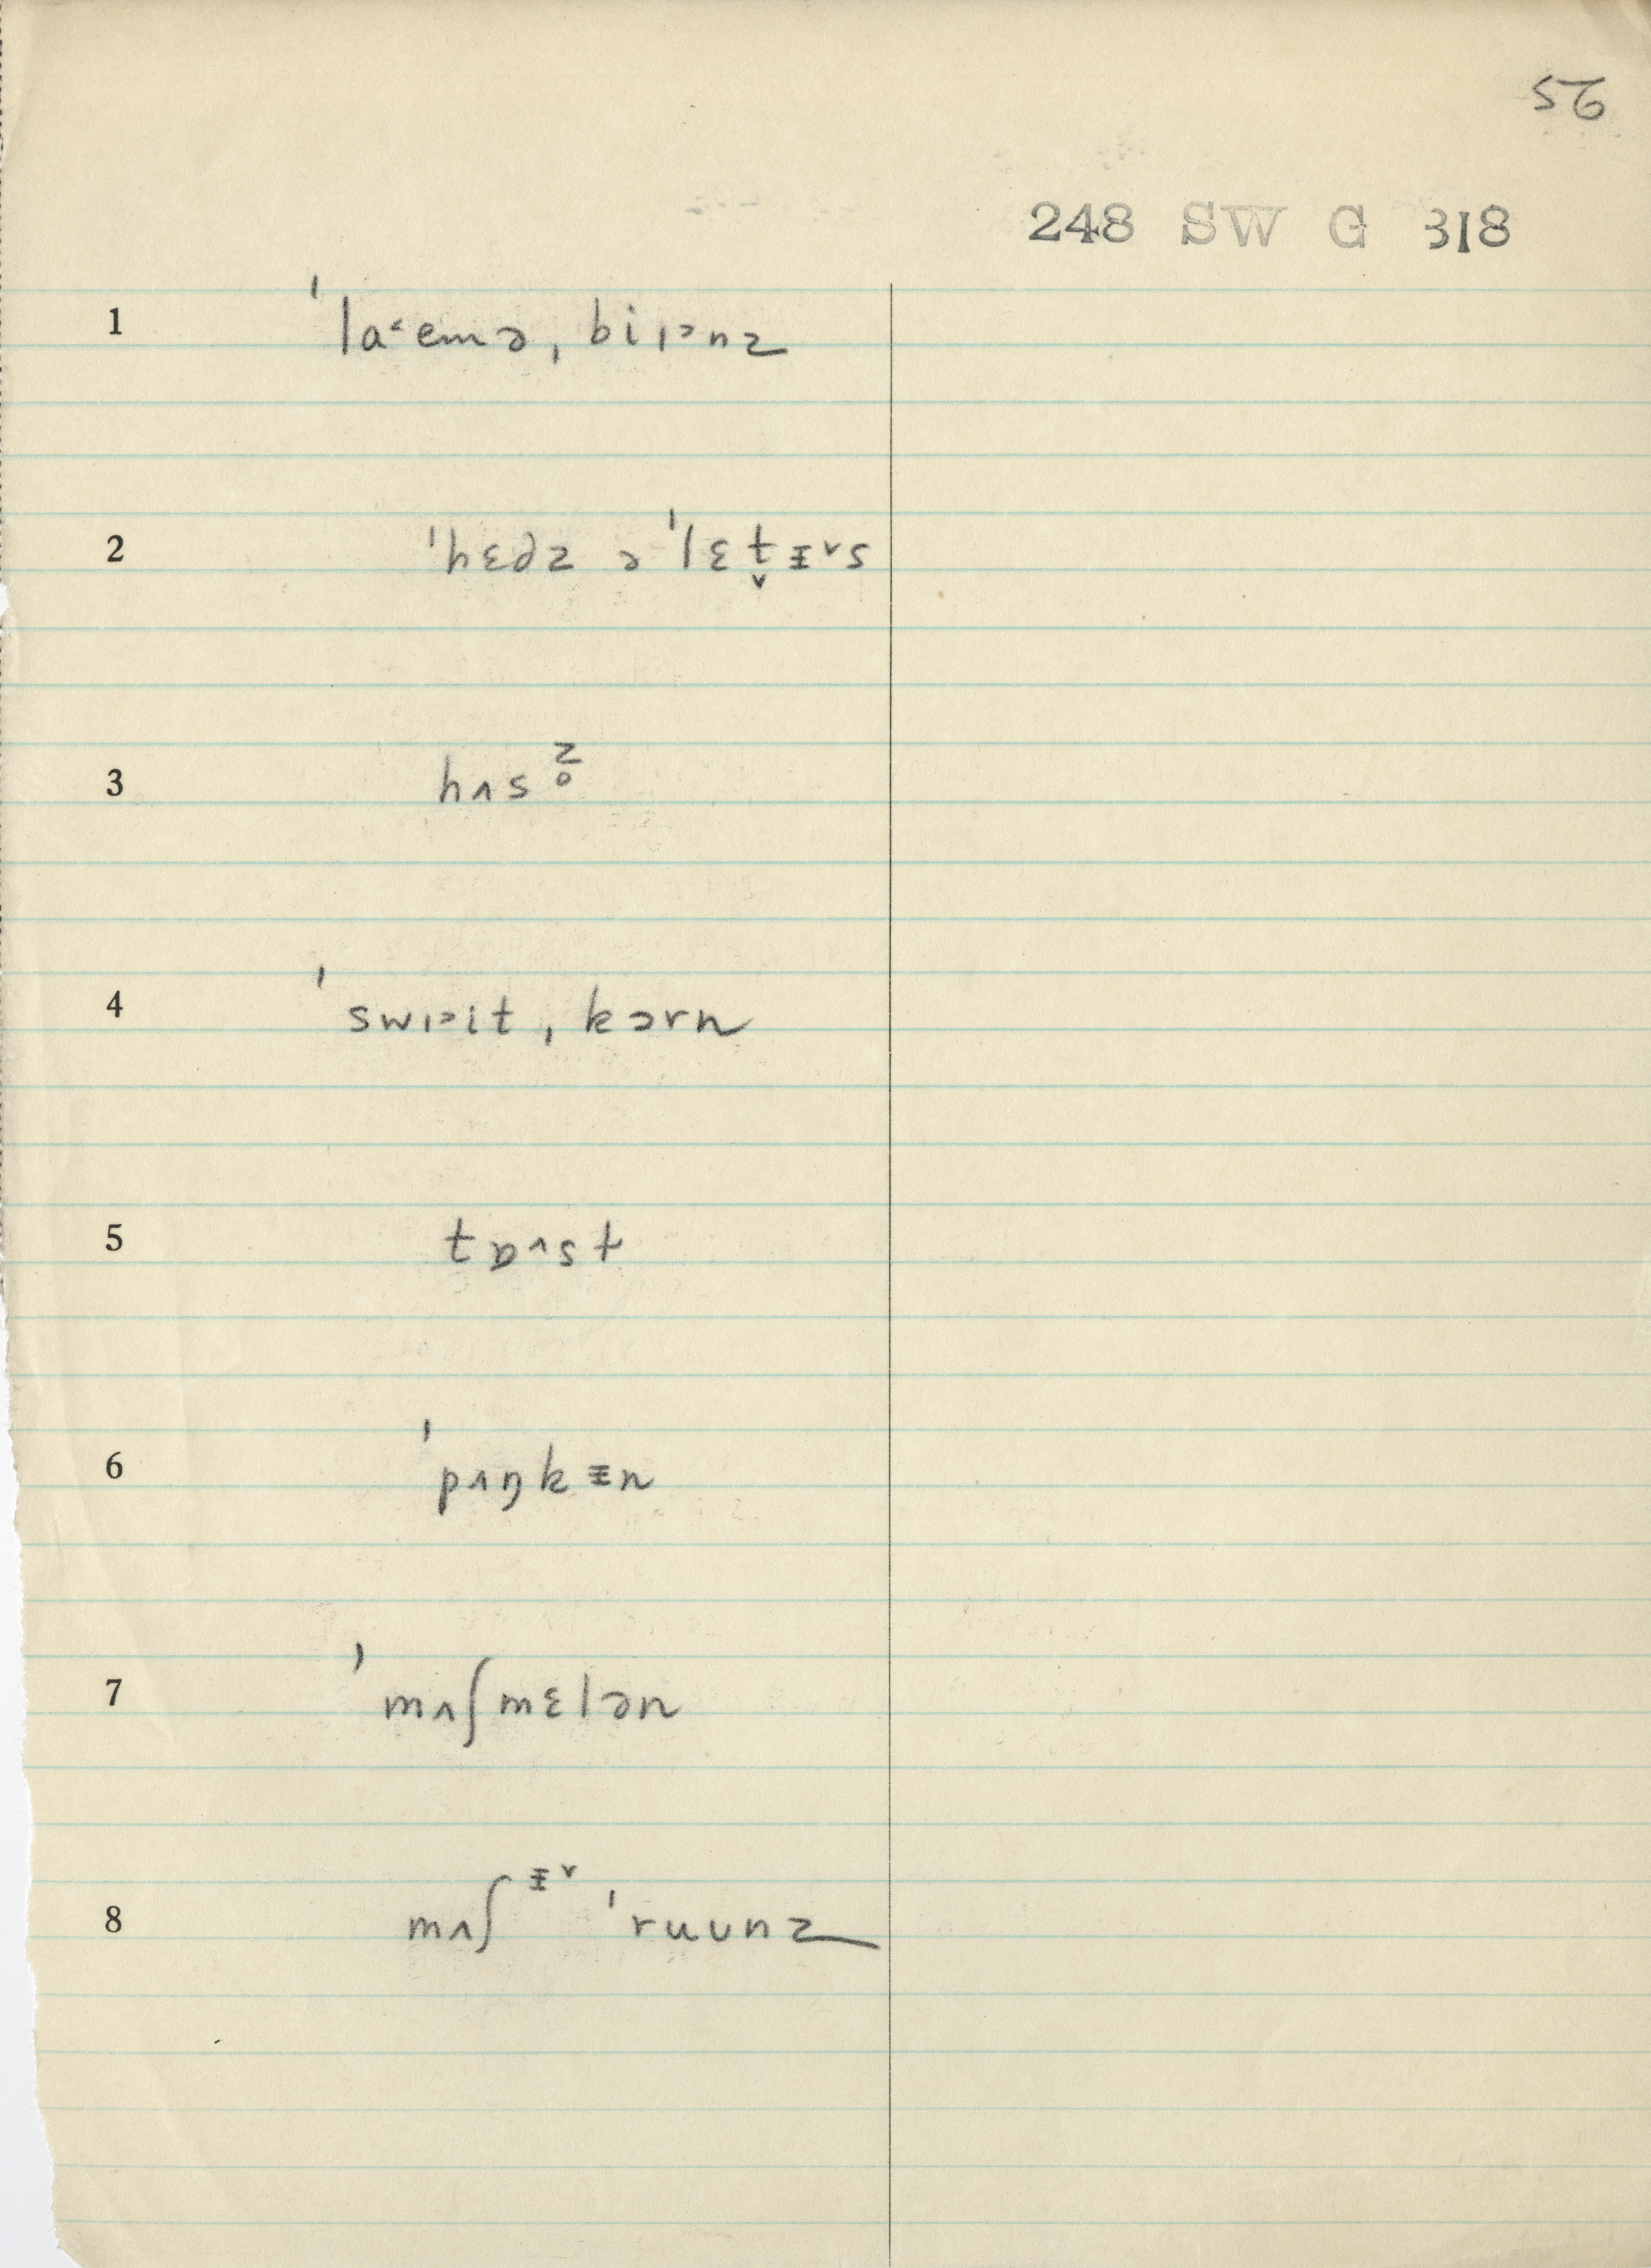 56
248 SW G 318
1 ˈlaˑemə ˌbiɪ˃nz
2 ˈhɛdz ə ˈlɛt̬ɪ˅s
3 hʌsz̥
4 ˈswɪ˃it ˌkɔrn
5 tɒ˄st
6 ˈpʌŋkɪn
7 ˈmʌʃmɛlən
8 mʌʃɪ˅ˈruunz